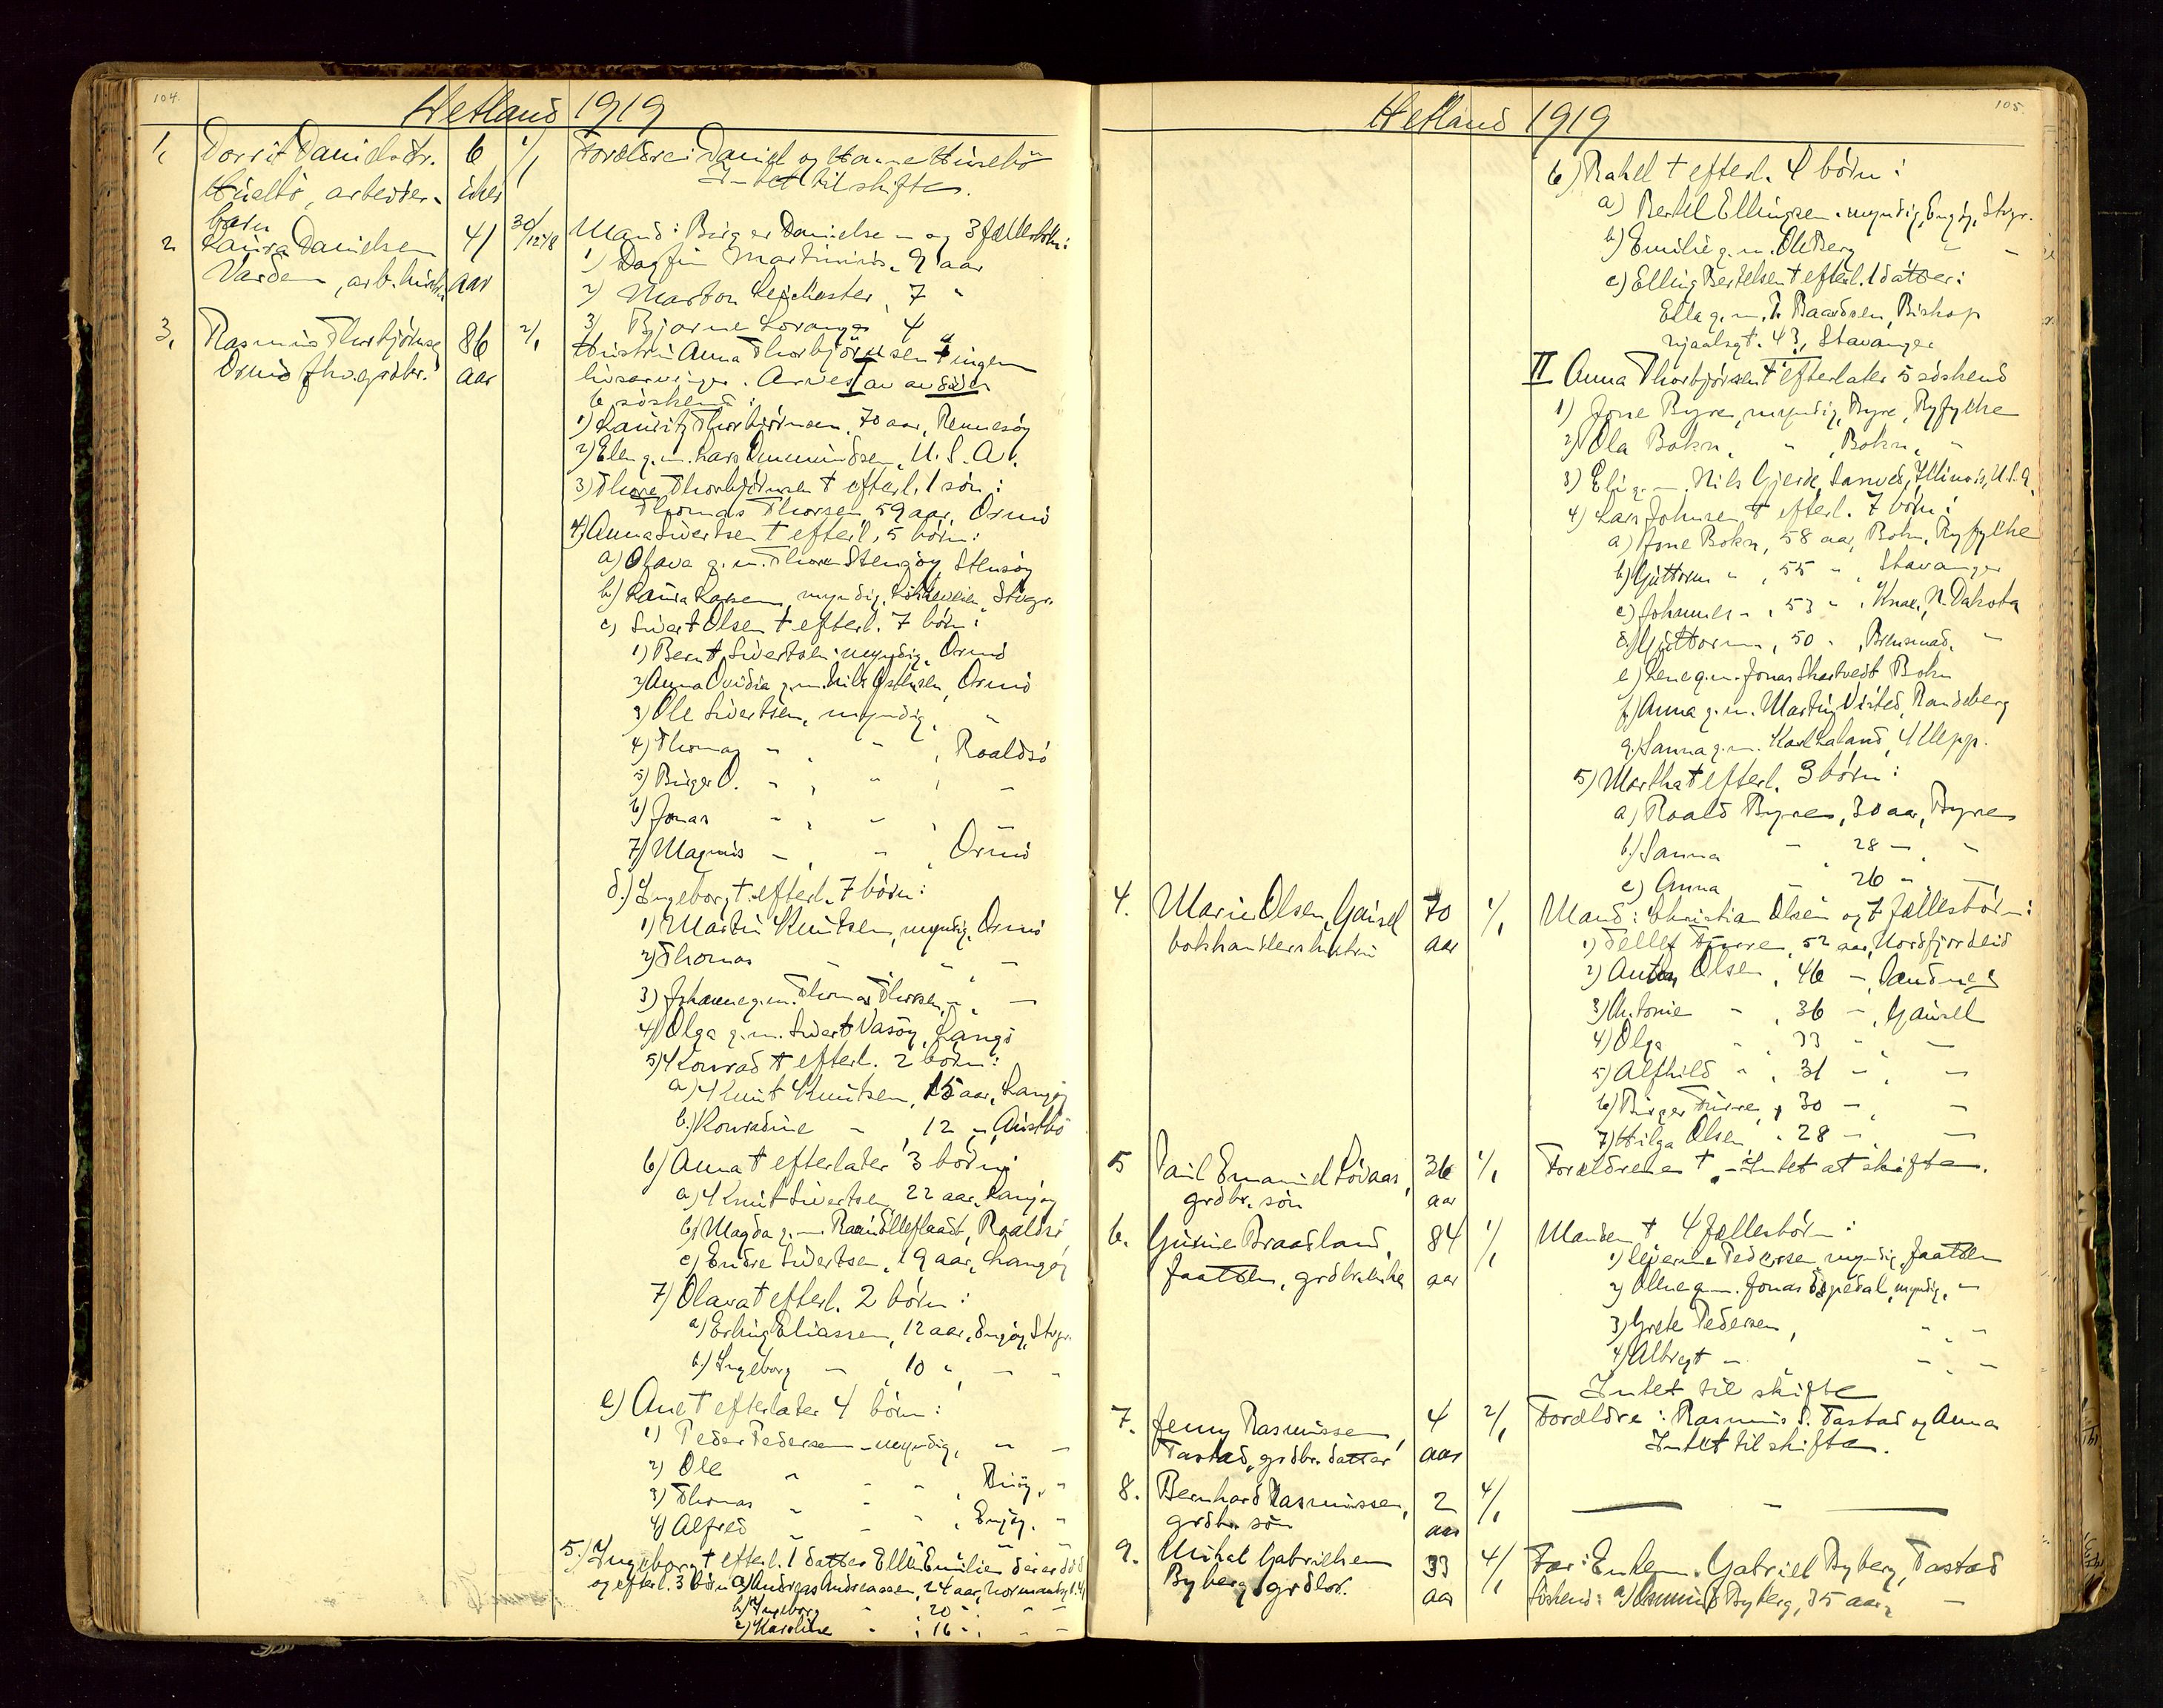 104.
Hetland 1919
1, Dorrit Danielsdtr. 6 1/1 Forældre: Daniel og Hanne Husebö
Husebö, arbeider- uker Intet til skifte.
barn
2 Laura Danielsen 41 30/12 18 Mand: Birger Danielsen og 3 fællesbörn:
Varden, arb. hustru aar 1) Dagfin Martinius, 9 aar
2) Marton 7 "
3) Bjarne 4 "
3, Rasmus Thorbjörnsen 86 2/1 Hustru Anna Thorbjörnsen † ingen
Ormö fhv. grdbr. aar livsarvinger. Arves I av avdödes
6 söskend:
1) Lauritz Thorbjörnsen, 70 aar, Rennesöy
2) Elen g.m. Lars Ommundsen, U.S.A.
3) Thore Thorbjörnsen † efterl. 1 sön:
Thomas Thorsen 59 aar, Ormö
4) Anna Sivertsen † efterl. 5 börn:
a) Olava g.m. Thore Stensöy, Stensöy
b) Laura myndig, Stvgr.
c) Sivert Olsen † efterl. 7 börn:
1) Bernt Sivertsen, myndig, Ormö
2) Anna Ovidia g.m. Nils Östensen, Ormö
3) Ole Sivertsen, myndig, "
4) Thomas " , " , Roaldsö
5) Birger O. " , " , "
6) Jonas " , " , "
7) Magnus " , " , Ormö
d.) Ingeborg † efterl. 7 börn:
1) Martin Knutsen, myndig, Ormö
2) Thomas " " "
3) Johanne g.m. Thomas Thorsen, " "
4) Olga g.m. Sivert Vasöy, Langö
5) Konrad † efterl. 2 börn:
a) Knut Knutsen, 15 aar, Langöy
b.) Konradine " , 12 " , Austbö
6) Anna † efterlater 3 börn:
a) Knut Sivertsen, 22 aar, Langöy
b) Magda g.m. Roaldsö
c) Endre Sivertsen, 19 aar, Langöy
7) Olava † efterl. 2 börn:
a) Erling Eliassen, 12 aar, Engöy, Stvgr.
b.) Ingeborg " , 10 " , " "
e) Ane † efterlater 4 börn:
1) Peder Pedersen, myndig, " "
2) Ole " " " , Buöy, "
3) Thomas " " "
4) Alfred " " " , Engöy, "
5.) Ingeborg † efterl. 1 datter Elle Emilie, der er död
og efterl. 3 börn a) Andreas Andreassen, 24 aar,
b) Ingeborg " , 20 " , " "
c) Karoline " , 16 " , " "
105.
Hetland 1919
6) Rakel † efterl. 4 börn:
a) Bertel Ellingsen, myndig, Engöy, Stvgr.
b) Emilie g.m. Ole Berg " "
c) Elling Bertelsen † efterl. 1 datter:
Ella g.m. Baardsen, Bishop
njaalsgt. 43, Stavanger
II Anna Thorbjörnsen † efterlater 5 söskend
1) Jone Byre, myndig, Byre, Ryfylke
2) Ola Bokn, " , Bokn, "
3) Eli g.m. Nils Gjerde, Illinois, U.S.A.
4) Lars Johnsen † efterl. 7 börn:
a) Jone Bokn, 58 aar, Bokn, Ryfylke
b) Guttorm " , 55 " , Stavanger
c) Johannes " , 53 " , N. Dakota
d) Guttorm , 50 " , "
e) Lene g.m. Jonas Bokn
f) Anna g.m. Martin Visted, Randeberg
g.) Sanna g.m. Karl Laland, Klepp.
5) Martha † efterl. 3 börn:
a) Roald Byre, 30 aar, Byre
b.) Sanna " , 28 " , "
c) Anna " 26 " , "
4. Marie Olsen, Gausel 70 1/1 Mand: Christian Olsen og 7 fællesbörn:
bokhandlershustru aar 1) Tellef Furre, 52 aar, Nordfjordeid
2) Anton Olsen, 46 " , Sandnes
3) Antonie " , 36 " , Gausel
4) Olga " , 33 " , "
5) Alfhild " , 31 " , "
6) Birger Furre, 30 " , "
7) Helga Olsen, 28 " , "
5 Paul Emanuel Lövaas, 36 1/1 Forældrene †. Intet at skifte.
grdbr. sön aar
6. Gurine Braadland, 84 1/1 Manden † 4 fællesbörn:
Jaatten, grdbr.enke aar 1) Severine Pedersen, myndig, Jaatten
2) Oline g.m. Jonas Espedal, myndig, "
3) Grete Pedersen, " , "
4) Albregt " " , "
Intet til skifte
7. Jenny Rasmussen, 4 2/1 Forældre: Rasmus S. Tastad og Anna
Tastad, grdbr. datter aar Intet til skifte.
8. Bernhard Rasmussen, 2 4/1 — " —
grdbr. sön aar
9. Mikal Gabrielsen 33 4/1 Far: Enkem. Gabriel Byberg, Tastad
Byberg, grdbr. aar Söskend: a) Rasmus Byberg, 35 aar, "